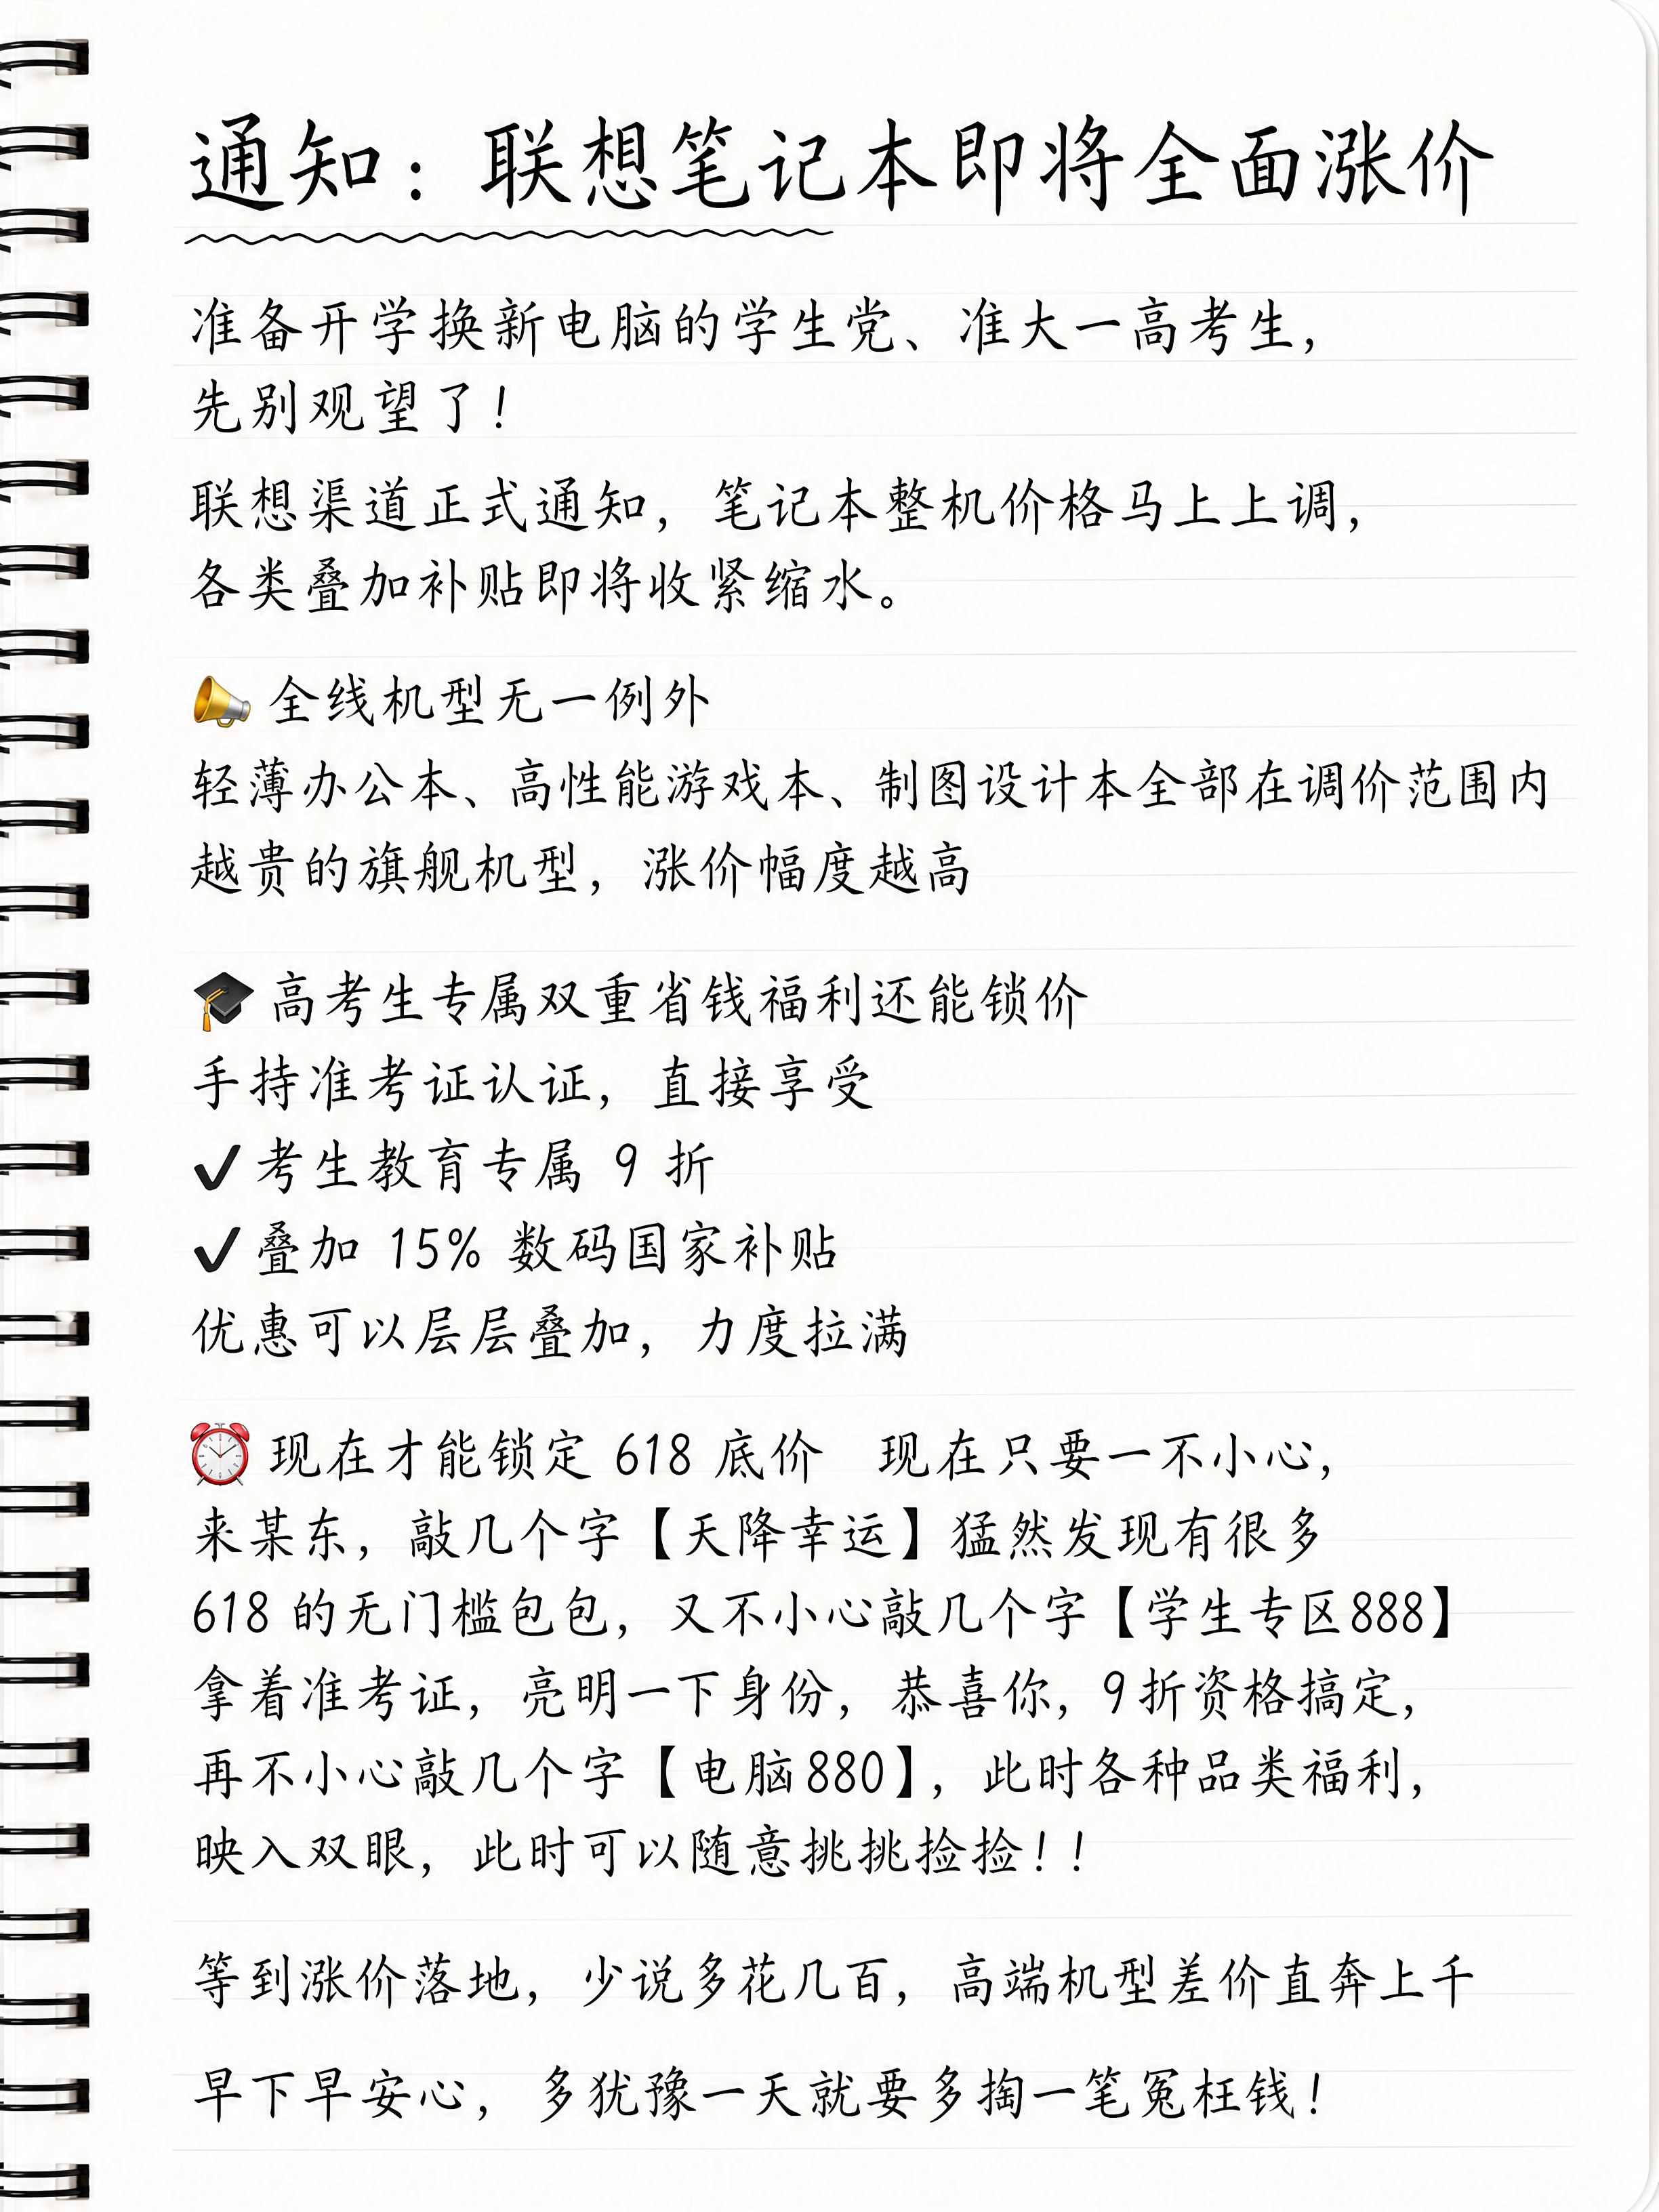 通知：联想笔记本即将全面涨价
准备开学换新电脑的学生党、准大一高考生，
先别观望了！
联想渠道正式通知，笔记本整机价格马上上调，
各类叠加补贴即将收紧缩水。
📣全线机型无一例外
轻薄办公本、高性能游戏本、制图设计本全部在调价范围内
越贵的旗舰机型，涨价幅度越高
🎓高考生专属双重省钱福利还能锁价
手持准考证认证，直接享受
✔考生教育专属 9 折
✔叠加 15% 数码国家补贴
优惠可以层层叠加，力度拉满
⏰现在才能锁定 618 底价　现在只要一不小心，
来某东，敲几个字【天降幸运】猛然发现有很多
618 的无门槛包包，又不小心敲几个字【学生专区888】
拿着准考证，亮明一下身份，恭喜你，9折资格搞定，
再不小心敲几个字【电脑880】，此时各种品类福利，
映入双眼，此时可以随意挑挑捡捡！！
等到涨价落地，少说多花几百，高端机型差价直奔上千
早下早安心，多犹豫一天就要多掏一笔冤枉钱！